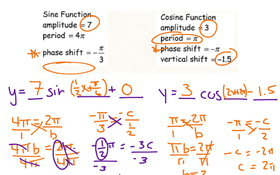 Sine Function
amplitude = 7
period = 4π
* phase shift = -π/3
Cosine Function
amplitude = 3
period = π
* phase shift = -π
vertical shift = -1.5
y = 7 sin (1/2 x + π/6) + 0
y = 3 cos (2x+2π) - 1.5
4π/1 = 2π/b
-π/3 = -c/(1/2)
π/1 = 2π/b
-π/1 = -c/2
4πb/4π = 2π/4π
-1/2 π/-3 = -3c/-3
πb/π = 2π/π
-c = -2π
c = 2π